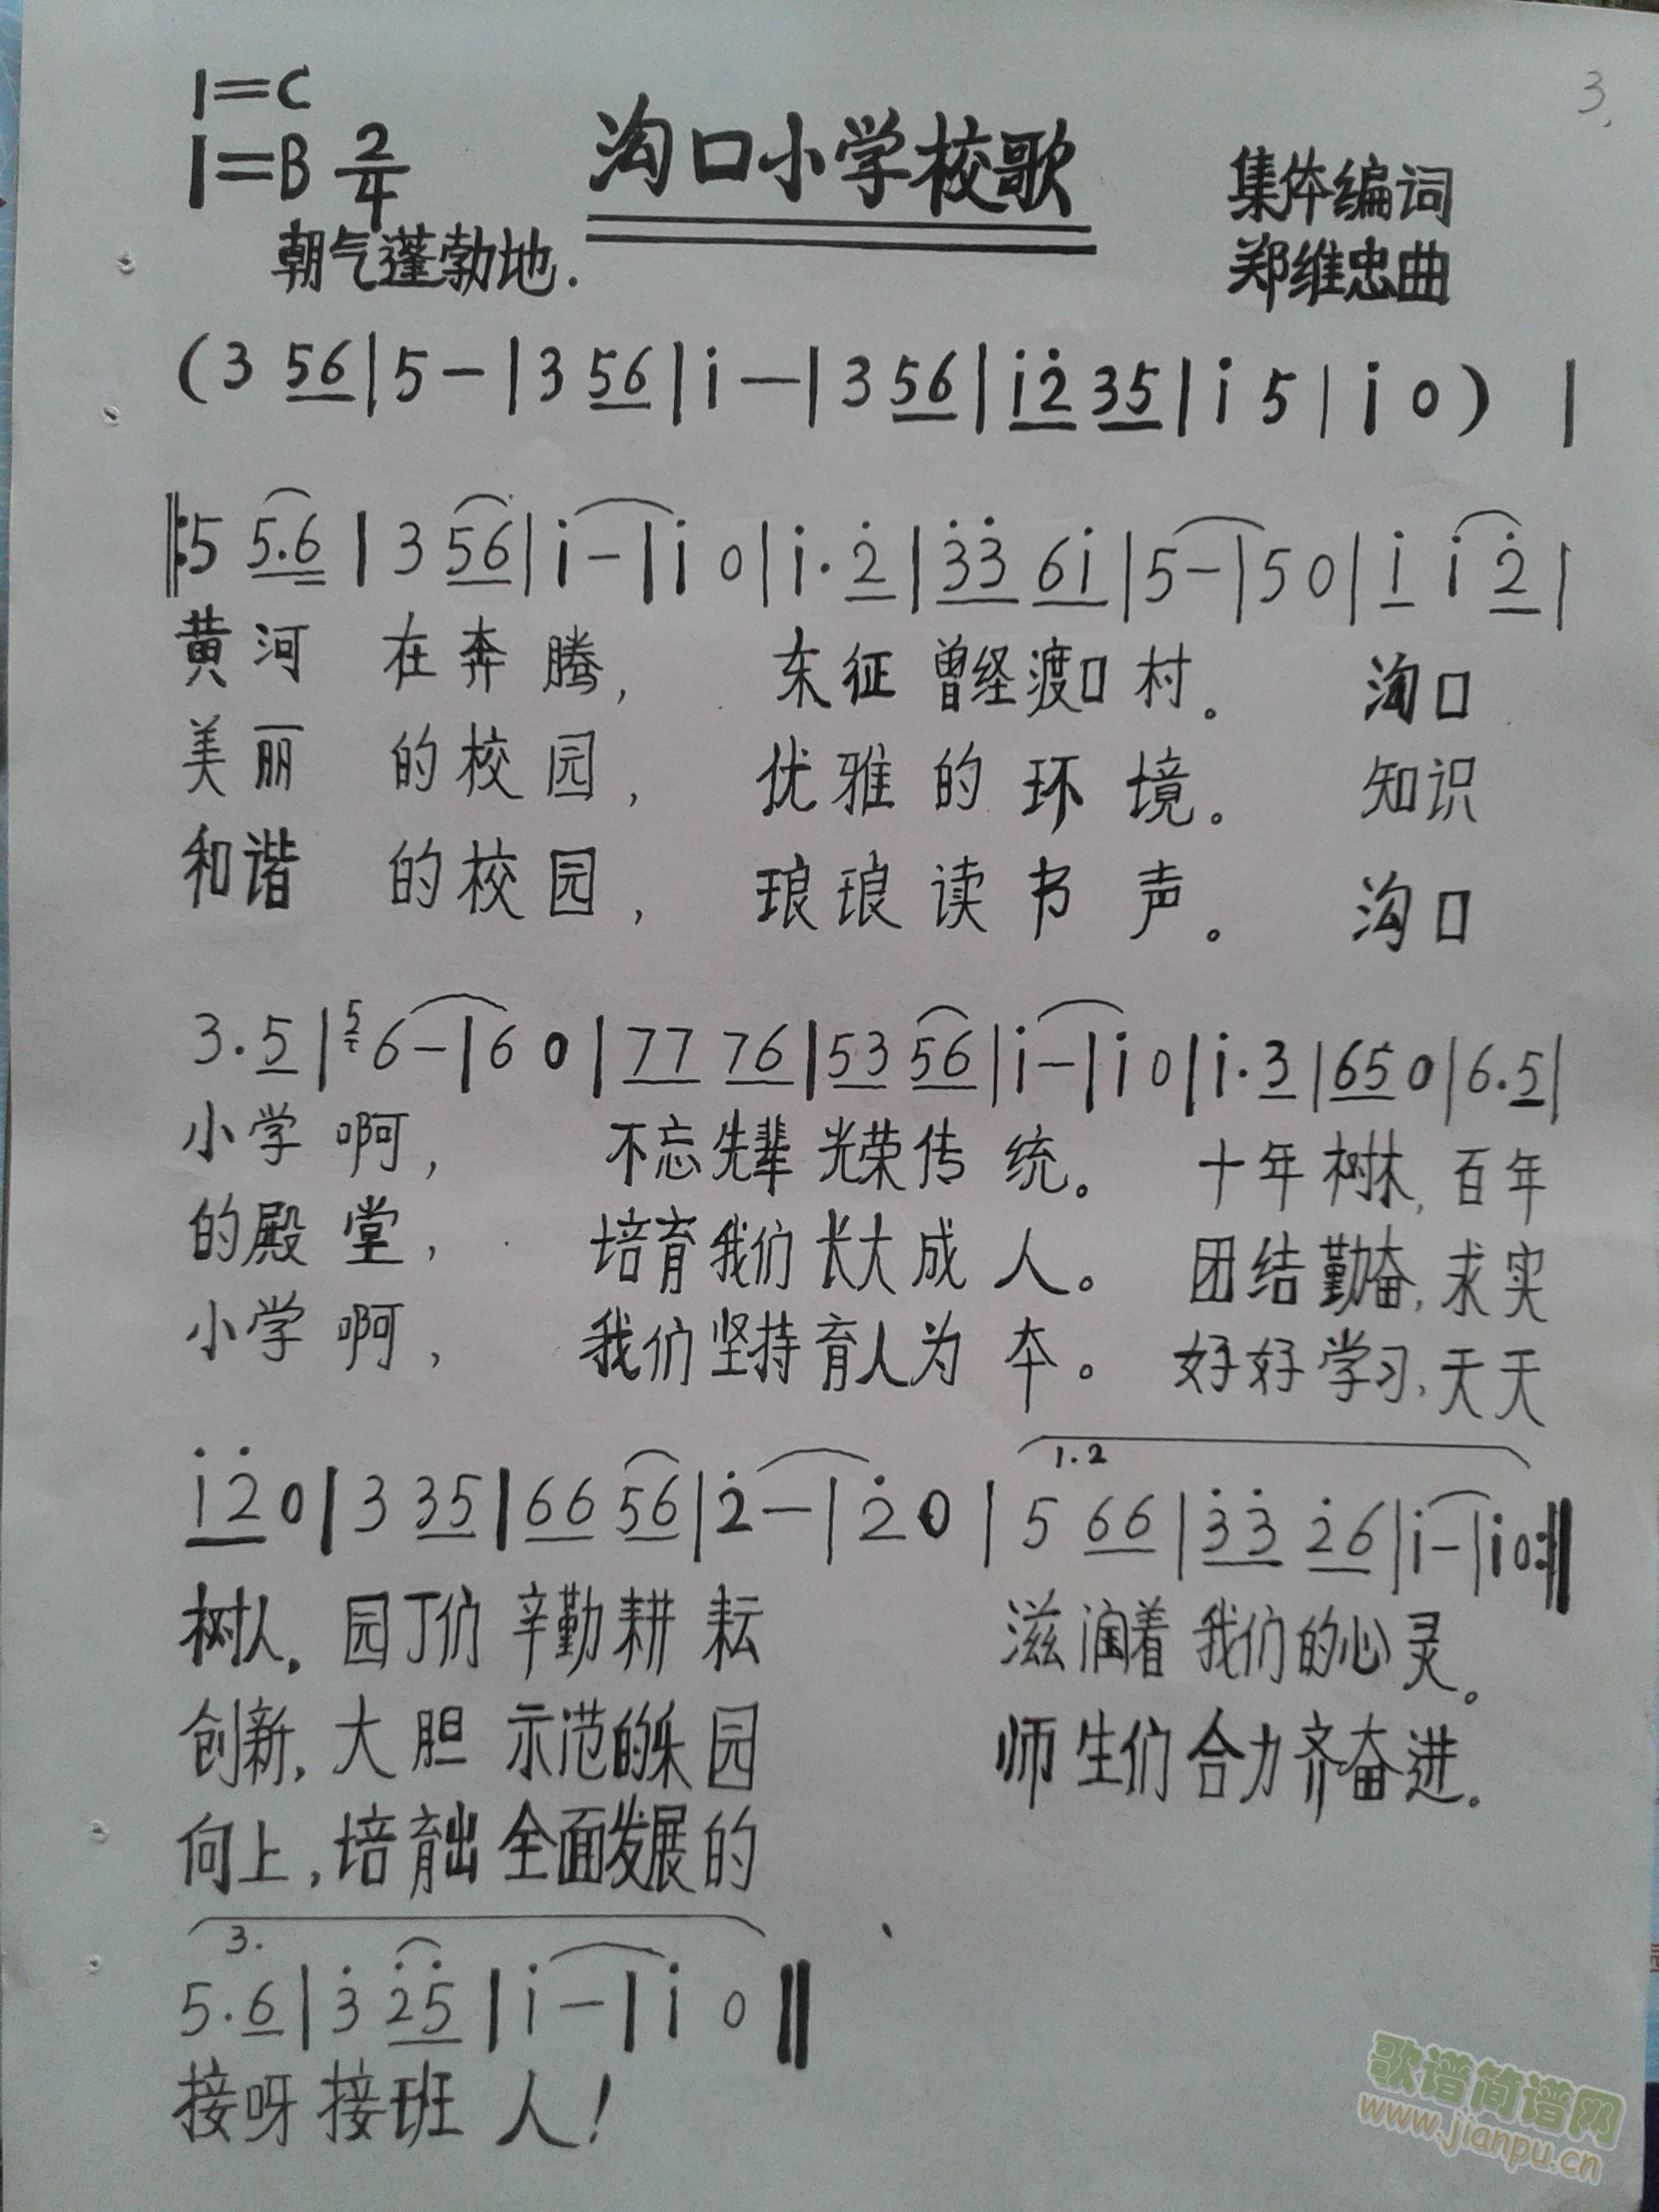 1=C
3
1=B 2/4 沟口小学校歌 集体编词
朝气蓬勃地. 郑维忠曲
(3 56|5-|3 56|i—|3 56|i2̇ 35|i 5|i 0) |
‖:5 5.6|3 56|i-|i 0|i·2̇|3̇3̇ 6i|5-|50|i i 2̇|
黄河 在奔腾, 东征曾经渡口村。 沟口
美丽 的校园, 优雅的环境。 知识
和谐 的校园, 琅琅读书声。 沟口
3·5|⁵6-|6 0|77 76|53 56|i-|i 0|i·3|650|6.5|
小学啊, 不忘先辈光荣传统。 十年树木,百年
的殿堂, 培育我们长大成人。 团结勤奋,求实
小学啊, 我们坚持育人为本。 好好学习,天天
1.2
i2̇0|3 35|66 56|2̇—|2̇0|5 66|3̇3̇ 2̇6|i-|i0:‖
树人。园丁们辛勤耕耘 滋润着我们的心灵。
创新,大胆示范的乐园 师生们合力齐奋进。
向上,培育出全面发展的
3.
5.6|3̇ 2̇5̇|i—|i 0‖
接呀接班人!
歌谱简谱网
www.jianpu.cn